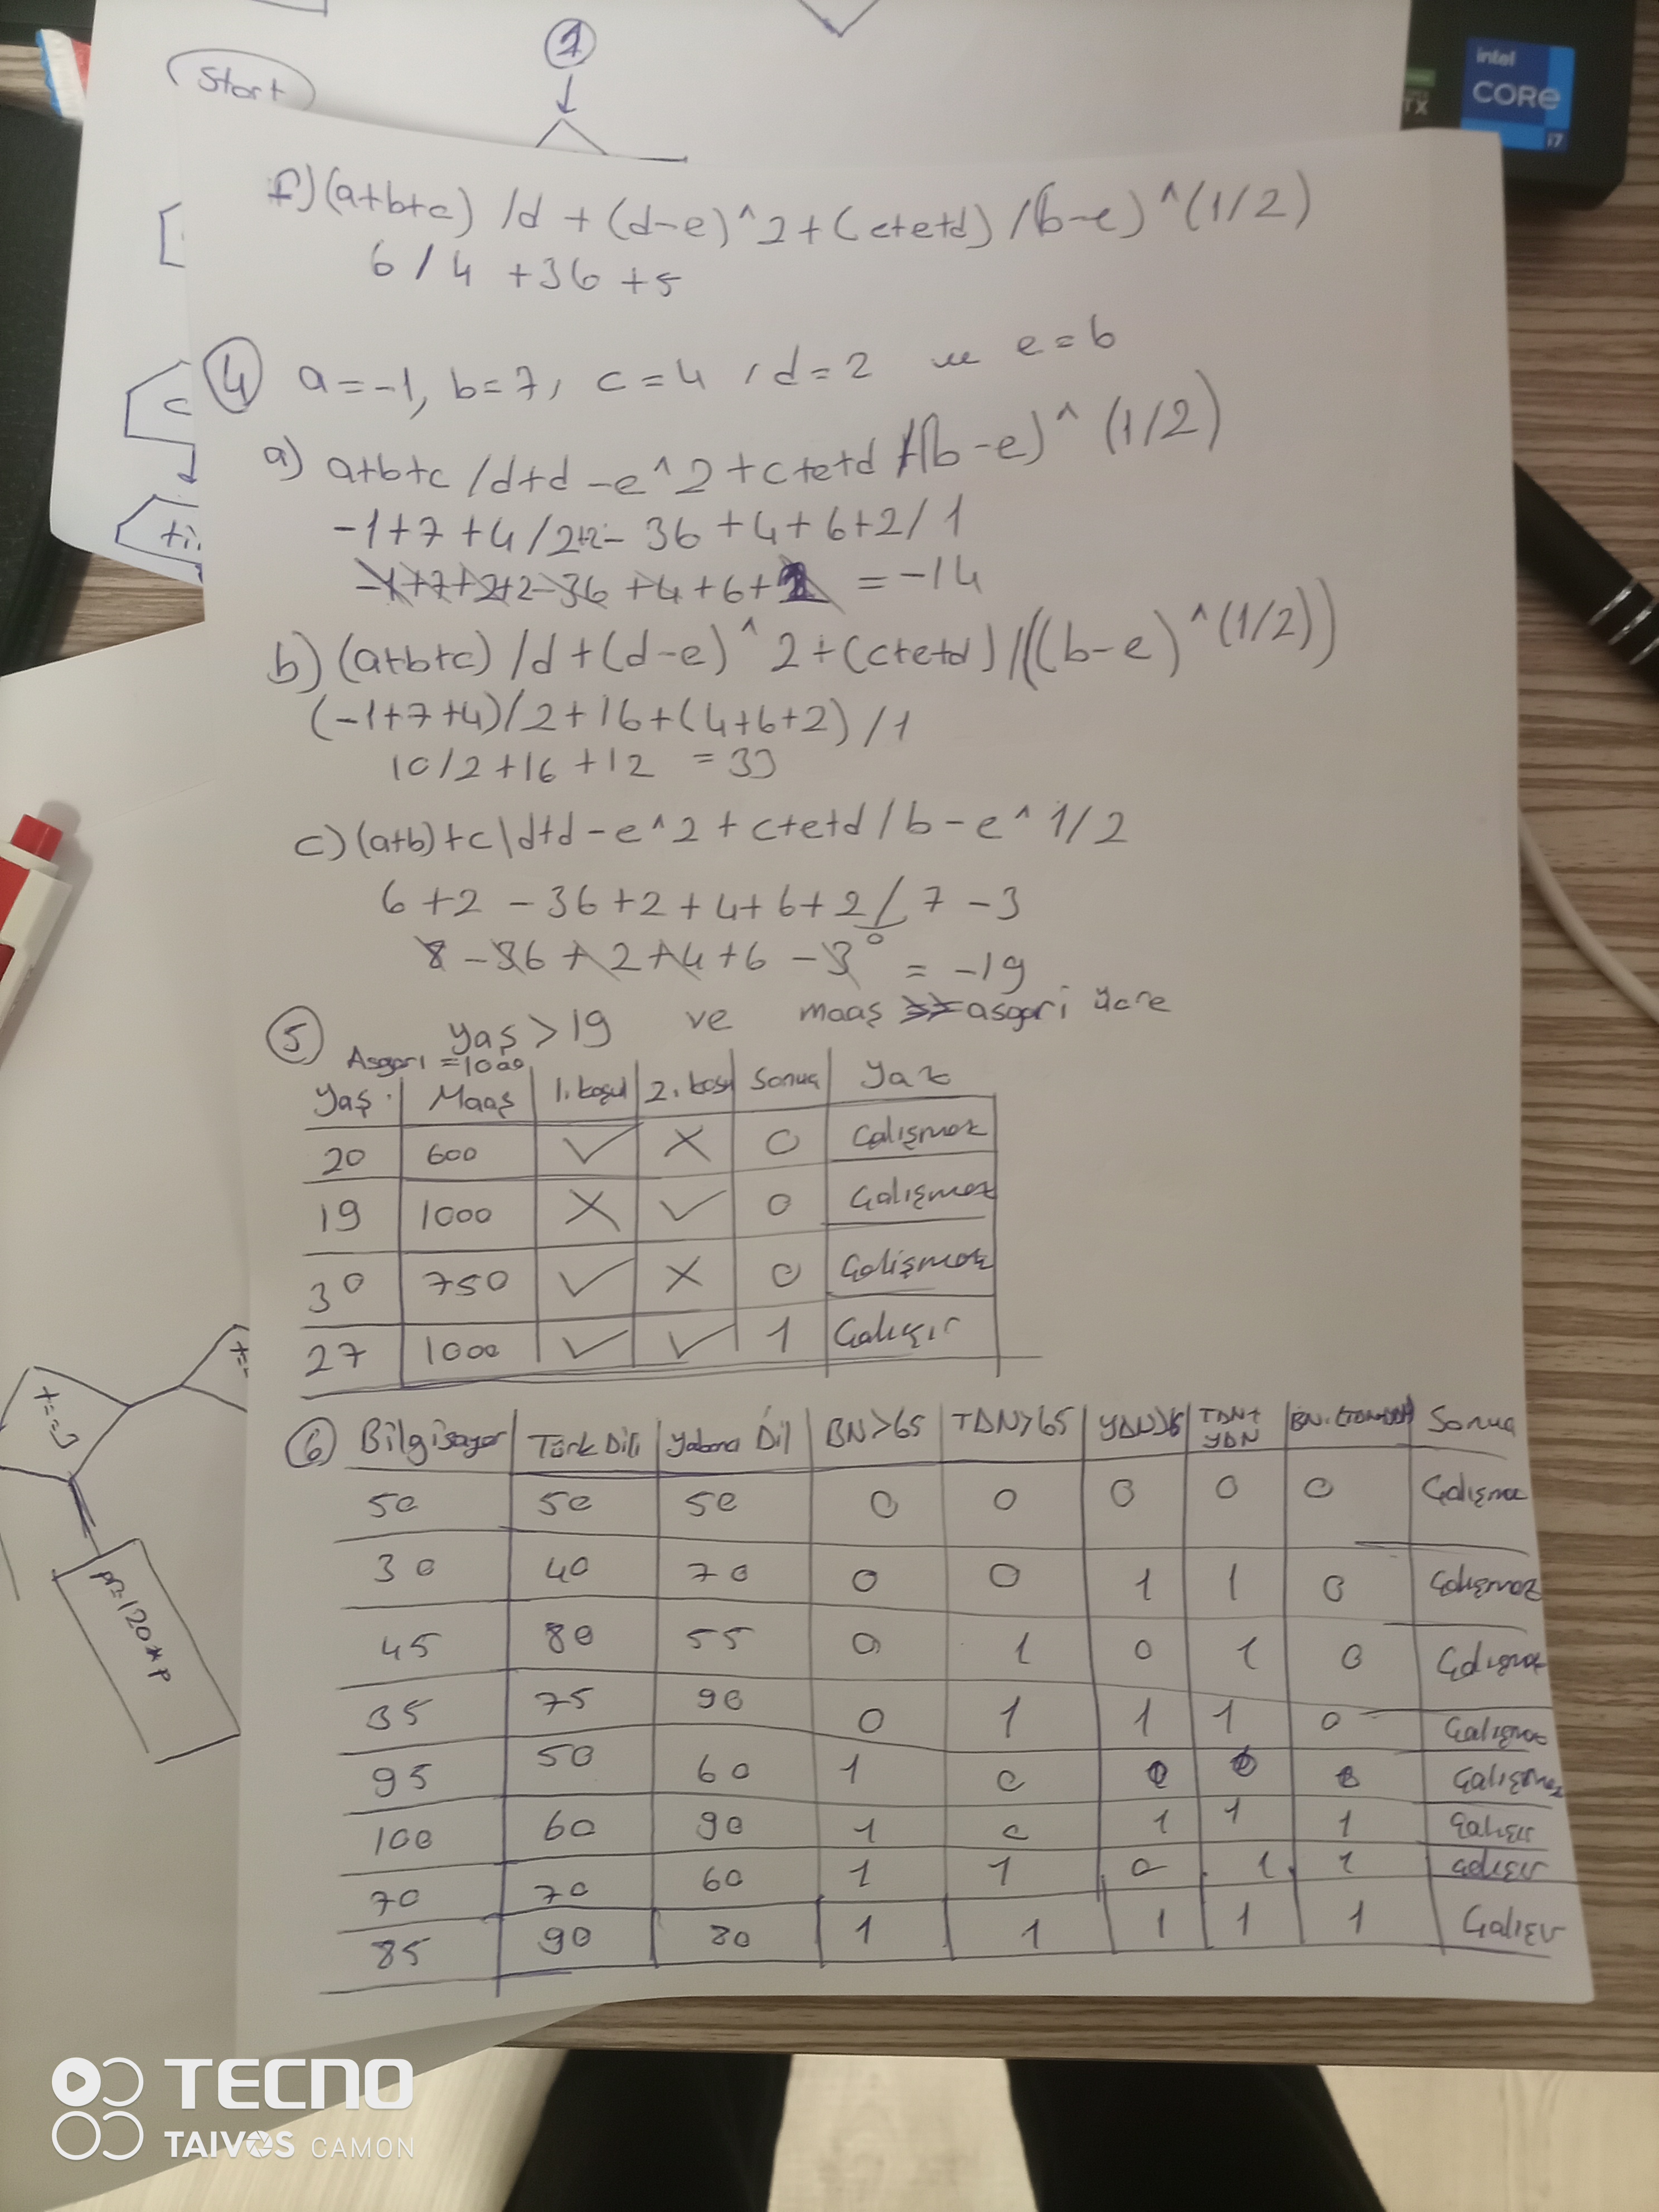 1
Start
intel
CORe
i7
TX
f) (a+b+c) /d + (d-e)^2+(c+e+d) /(b-e)^(1/2)
6 / 4 +36 +5
4 a=-1, b=7, c=4, d=2 ve e=6
a) a+b+c /d+d -e^2+c+e+d /(b-e)^(1/2)
-1+7+4/2+2-36+4+6+2/1
-1+7+2+2-36+4+6+2 =-14
b) (a+b+c) /d+(d-e)^2+(c+e+d) /((b-e)^(1/2))
(-1+7+4)/2+16+(4+6+2)/1
10/2+16+12 =33
c) (a+b)+c\d+d-e^2+c+e+d/b-e^1/2
6+2-36+2+4+6+2/7-3
0
8-36+2+4+6-3 =-19
5 yaş>19 ve maaş asgari ücre
Asgari =1000
Yaş Maaş 1.koşul 2.koşul Sonuç Yaz
20 600 ✓ X 0 Çalışmaz
19 1000 X ✓ 0 Çalışmaz
30 750 ✓ X 0 Çalışmaz
27 1000 ✓ ✓ 1 Çalışır
6 Bilgisayar Türk Dili Yabancı Dil BN>65 TDN>65 YDN>65 TDN+YDN BN.(TDN+YDN) Sonuç
50 50 50 0 0 0 0 0 Çalışmaz
30 40 70 0 0 1 1 0 Çalışmaz
45 80 55 0 1 0 1 0 Çalışmaz
35 75 90 0 1 1 1 0 Çalışmaz
95 50 60 1 0 0 0 0 Çalışmaz
100 60 90 1 0 1 1 1 Çalışır
70 70 60 1 1 0 1 1 Çalışır
85 90 80 1 1 1 1 1 Çalışır
c
ti
t==3
t=
p=120*p
TECNO
TAIVOS CAMON